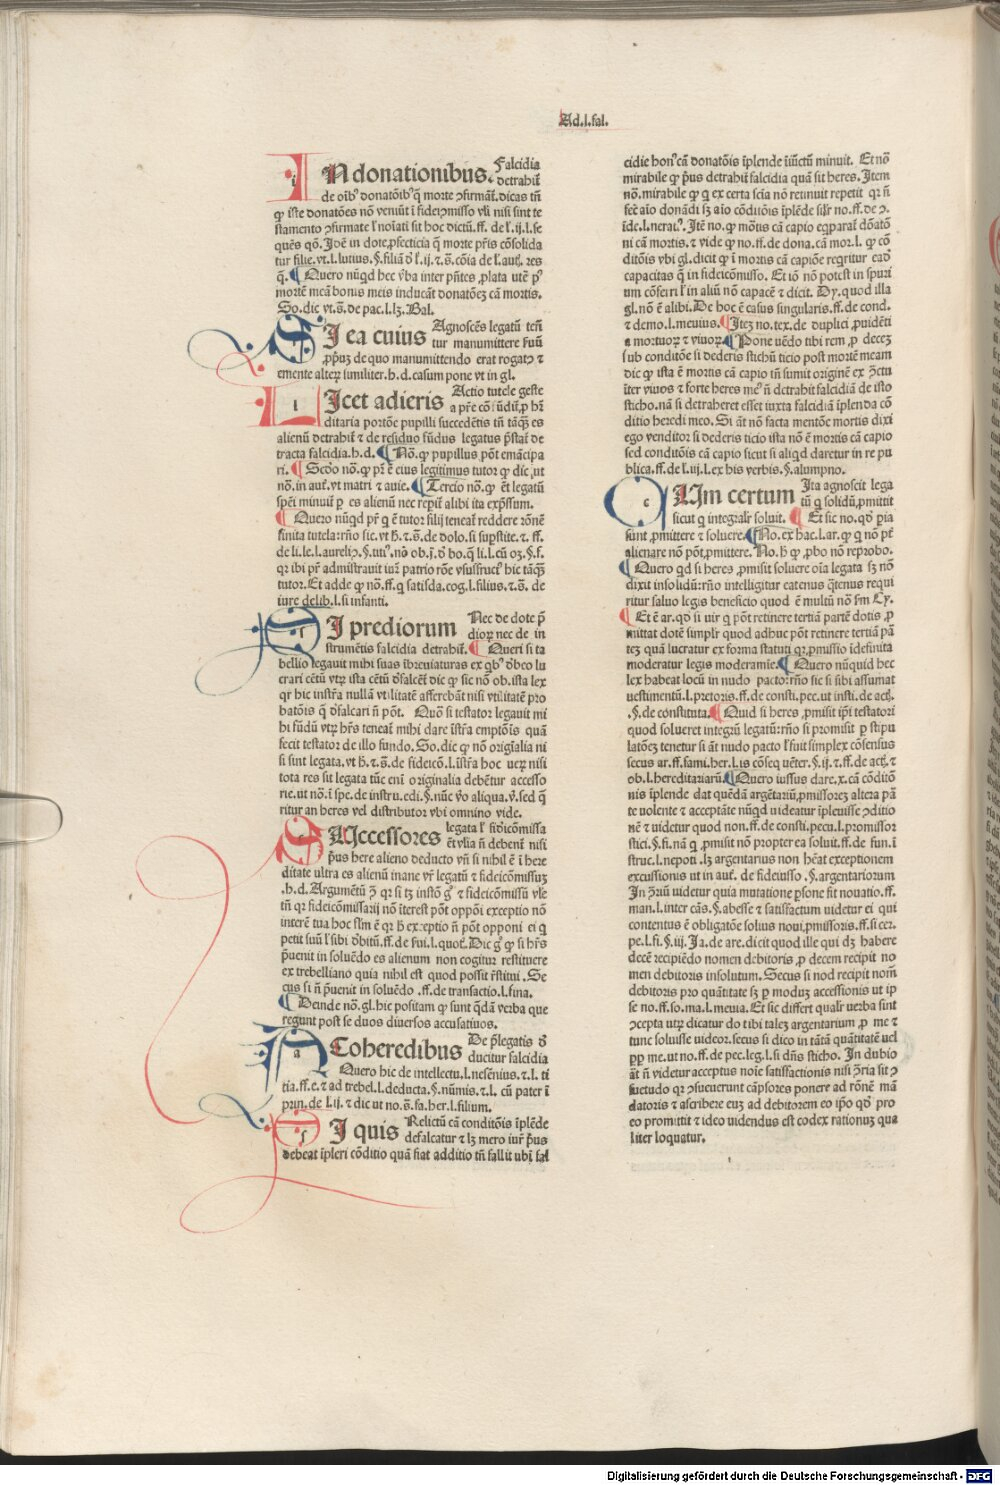 Ad.l.fal.
IN donationibus. Falcidia
detrahit̄
de oīb' donatōib' q̄ morte ɔfirmāt. dicas tn̄
ꝙ iste donatōes nō veniūt ī fideiɔmisso vl'i nisi sint te
stamento ɔfirmate l' noīati sit hoc dictū. ff. de l'.ij.l.se
quēs qō. Idē in dote ,pfecticia q̄ morte p̄ris cōsolida
tur filie. vt.l. lutius. §. filiā
Quero nūqd hec v̄ba inter p̄ntes ,plata
mortē meā bonus meis inducāt donatōeꝫ cā mortis.
So. dic vt.s̄. de pac.l.lꝫ. Bal.
SI ea cuius Agnoscēs legatū ten̄
tur manumittere suū
,ppuꝫ de quo manumittendo erat rogatꝰ ⁊
emente alterꝫ similiter. h.d. casum pone vt in gl.
LIcet adieris Actio tutele geste
a p̄re
ditaria portōe pupilli succedētis tn̄ tāqꝫ es
alienū detrahit̄ ⁊ de residuo fūdus legatus p̄stat̄ de
tracta falcidia. h.d. Nō. ꝙ pupillus pōt emācipa
ri. Scdo nō. ꝙ pr̄ ē eius legitimus tutor ꝙ dic, ut
nō. in aut̄. vt matri ⁊ auie. Tercio nō. ꝙ ēt legatū
sp̄ei minuit̄ ꝑ es alienū nec repit̄ alibi ita exp̄ssum.
Quero nūqd pr̄ q ē tutor filij teneat̄ reddere rōnē
finita tutela: rn̄o sic. vt h̄. ⁊.s̄. de dolo. si sup̄stite. ⁊. ff.
tutor. Et adde ꝙ nō. ff. q satisda. cog.l. filius. ⁊.s̄. de
iure delib.l. si infanti.
SI prediorum Nec de dote p̄
dioꝝ nec de in
strumētis falcidia detrahit̄. Queri si ta
bellio legauit mihi suas ībreuiaturas ex qb' d̄beo lu
crari cētū vtꝝ ista cētū d̄falcēt̄ dic ꝙ sic nō ob. ista lex
qꝛ hic instr̄a nullā vtilitatē afferebāt nisi vtilitatē pro
batōis q̄ d̄falcari n̄ pōt. Quō si testator legauit mi
hi fūdū vtꝝ hr̄s teneat̄ mihi dare istr̄a emptōis quā
fecit testator de illo fundo. So. dic ꝙ nō origīalia ni
si sint legata. vt h̄. ⁊.s̄. de fideicō.l. istr̄a hoc uerꝫ nisi
tota res sit legata tūc eni originalia debētur accesso
rie. ut nō. ī spe. de instru. edi. §. nūc v̄o aliqua. v̄. sed q̄
ritur an heres vel distributor vbi omnino vide.
SUccessores legata l' fideicōmissa
ēt vl'ia n̄ debent̄ nisi
p̄us here alieno deducto vn̄ si nihil ē ī here
ditate ultra es alienū inane vr̄ legatū ⁊ fideicōmissuꝫ
.h.d. Argumētū
tn̄ qꝛ fideicōmissarij nō īterest pōt oppōi exceptio nō
p̄uenit in soluēdo es alienum non cogitur restituere
ex trebelliano quia nihil est quod possit r̄stitui. Se
cus si n̄ p̄uenit in soluēdo. ff. de transactio.l. fina.
Deinde nō. gl. hic positam ꝙ sunt q̄dā verba que
regunt post se duos diuersos accusatiuos.
A Coheredibus De p̄legatis
ducitur falcidia
Quero hic de intellectu.l. nesēnius. ⁊.l. ti
tia. ff. e. ⁊ ad trebel.l. deducta. §. nūmis. ⁊.l. cū pater ī
prin. de l.ij. ⁊ dic ut no.s̄. fa. her.l. filium.
SI quis Relictū cā conditōis īplēde
defalcatur ⁊ lꝫ mero iur̄ p̄us
debeat īpleri cōditio quā fiat additio tn̄ fallit ubi fal
cidie hon' cā donatōis īplende īiūctū minuit. Et nō
mirabile ꝙ p̄us detrahit̄ falcidia quā sit heres. Item
nō. mirabile ꝙ q ex certa sc̄ia nō retinuit repetit qꝛ n̄
fec̄ aīo donādi sꝫ aīo cōditōis īplēde silr̄ no. ff. de ɔ.
īde.l. nerat'. Itē no. ꝙ mōtis cā capio
ni cā mortis. ⁊ vide ꝙ no. ff. de dona. cā mor.l. ꝙ cō
ditōis vbi gl. dicit ꝙ ī mortis cā capiōe reqritur eadē
capacitas q̄ in fideicōmisso. Et iō nō potest in spuri
um cōferri l' in aliū nō capacē ⁊ dicit. Dy. quod illa
gl. nō ē alibi. De hoc ē casus singularis. ff. de cond.
⁊ demo.l. meuius. Iteꝫ no. tex. de duplici ,puidēti
a mortuoꝝ ⁊ viuoꝝ. Pone uēdo tibi rem ,p deceꝫ
sub conditōe si dederis stichū ticio post mortē meam
dic ꝙ ista ē mortis cā capio tn̄ sumit originē ex ɔ̄ctu
iter viuos ⁊ forte heres me' n̄ detrahit falcidiā de isto
sticho. nā si detraheret esset iuxta falcidiā īplenda cō
ditio heredi meo. Si āt nō facta mentōe mortis dixi
ego venditor si dederis ticio ista nō ē mortis cā capio
sed conditōis cā capio sicut si aliqd daretur in re pu
blica. ff. de l'.ij.l. ex his verbis. §. alumpno.
CUm certum Ita agnoscit lega
tū q solidū ,pmittit
sicut q integralr̄ soluit. Et sic no. qd' ꝑia
sunt ,pmittere ⁊ soluere. No. ex hac.l. ar. ꝙ q nō pt̄
alienare nō pōt ,pmittere. No. h̄ ꝙ ,pbo nō reprobo.
Quero qd si heres ,pmisit soluere oīa legata sꝫ nō
dixit insolidū: rn̄o intelligitur eatenus q̄tenus requi
ritur saluo legis beneficio quod ē multū nō fm Cy.
Et ē ar. qd' si uir q pōt retinere tertiā partē dotis ,p
mittat dotē simplr̄ quod adhuc pōt retinere tertiā pā
teꝫ quā lucratur ex forma statuti qꝛ ,pmissio īdefinita
moderatur legis moderamīe. Quero nūquid hec
lex habeat locū in nudo pacto: rn̄o sic si sibi assumat
uestimentū.l. pretoris. ff. de consti. pec. ut insti. de act̄.
.§. de constituta. Quid si heres ,pmisit ip̄i testatori
quod solueret integrū legatū: rn̄o si promisit ꝑ stipu
latōeꝫ tenetur si āt nudo pacto l' fuit simplex cōsensus
secus ar. ff. fami. her.l. is cōseq uēter. §. ij. ⁊. ff. de act̄. ⁊
ob.l. hereditariaꝝ. Quero iussus dare. x. cā cōditō
nis īplende dat quēdā argētariū ,pmissoreꝫ altera pā
te uolente ⁊ acceptāte nūqd uideatur īpleuisse ɔditio
nē ⁊ uidetur quod non. ff. de consti. pecu.l. promissor
stici. §. fi. nā q ,pmisit nō propter ea soluit. ff. de fun. ī
struc.l. nepoti. lꝫ argentarius non hēat exceptionem
excussionis ut in aut̄. de fideiusso. §. argentariorum
In ɔ̄riū uidetur quia mutatione ꝑsone fit nouatio. ff.
man.l. inter cās. §. abesse ⁊ satisfactum uidetur ei qui
contentus ē obligatōe solius noui ,pmissoris. ff. si cer.
pe.l. fi. §. iij. Ja. de are. dicit quod ille qui dꝫ habere
decē recipiēdo nomen debitoris ,p decem recipit no
men debitoris insolutum. Secus si nōd recipit nom̄
debitoris pro quātitate sꝫ ꝑ moduꝫ accessionis ut ip
se no. ff. so. ma.l. meuia. Et sic differt qualr̄ verba sint
ɔcepta utꝝ dicatur do tibi taleꝫ argentarium ,p me ⁊
tunc soluisse videor. secus si dico in tātā quātitatē uel
,p me. ut no. ff. de pec. leg.l. si dn̄s sticho. In dubio
āt n̄ videtur acceptus noīe satisfactionis nisi ɔ̄ria sit ɔ
suetudo qꝛ ɔsueuerunt cāpsores ponere ad rōnē mā
datoris ⁊ ascribere euꝫ ad debitorem eo ip̄o qd' pro
eo promittit ⁊ ideo videndus est codex rationuꝫ qua
liter loquatur.
Digitalisierung gefördert durch die Deutsche Forschungsgemeinschaft - DFG